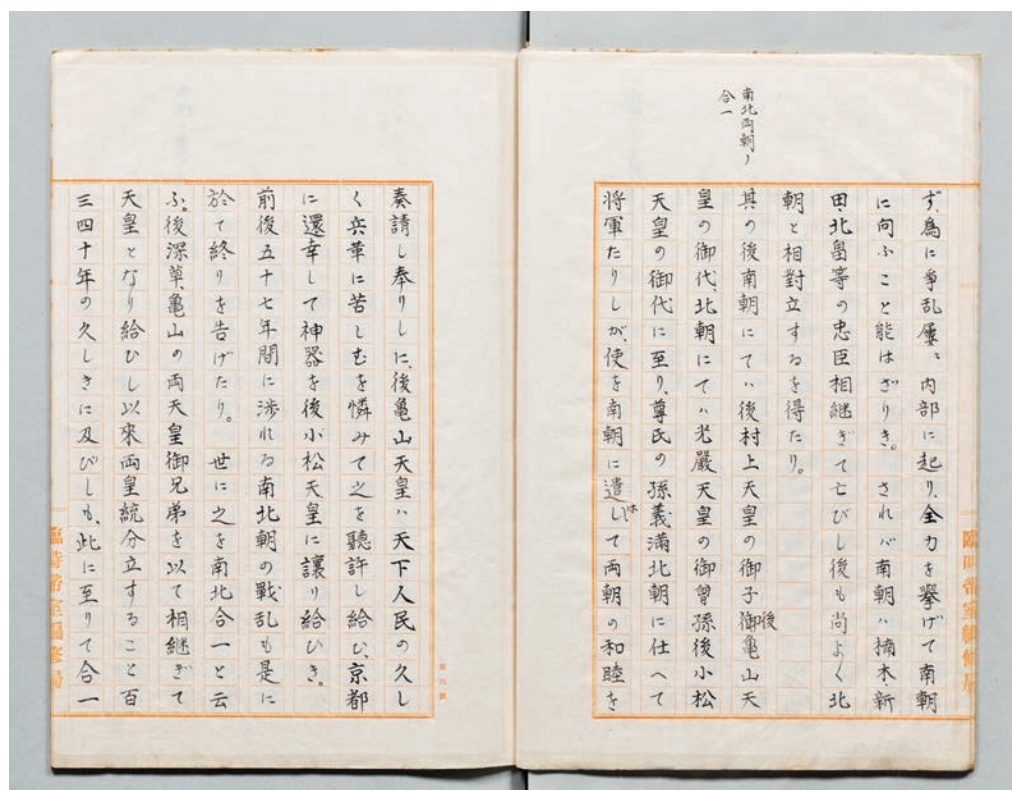 南北両朝ノ
合一
ず、為に爭乱屢〻内部に起り、全力を擧げて南朝
に向ふこと能はざりき。　されバ南朝ハ楠木・新
田北畠等の忠臣相継ぎて亡びし後も尚よく北
朝と相對立するを得たり。
其の後南朝にてハ後村上天皇の御子御後亀山天
皇の御代、北朝にてハ光嚴天皇の御曾孫後小松
天皇の御代に至り、尊氏の孫義満北朝に仕へて
将軍たりしが、使を南朝に遣して両朝の和睦を
奏請し奉りしに、後亀山天皇ハ天下人民の久し
く兵革に苦しむを憐みて之を聽許し給ひ、京都
に還幸して神器を後小松天皇に讓り給ひき。
前後五十七年間に渉れる南北朝の戰乱も是に
於て終りを告げたり。　世に之を南北合一と云
ふ。後深草、亀山の両天皇御兄弟を以て相継ぎて
天皇となり給ひし以來両皇統分立すること百
三四十年の久しきに及びしも、此に至りて合一
臨時帝室編修局